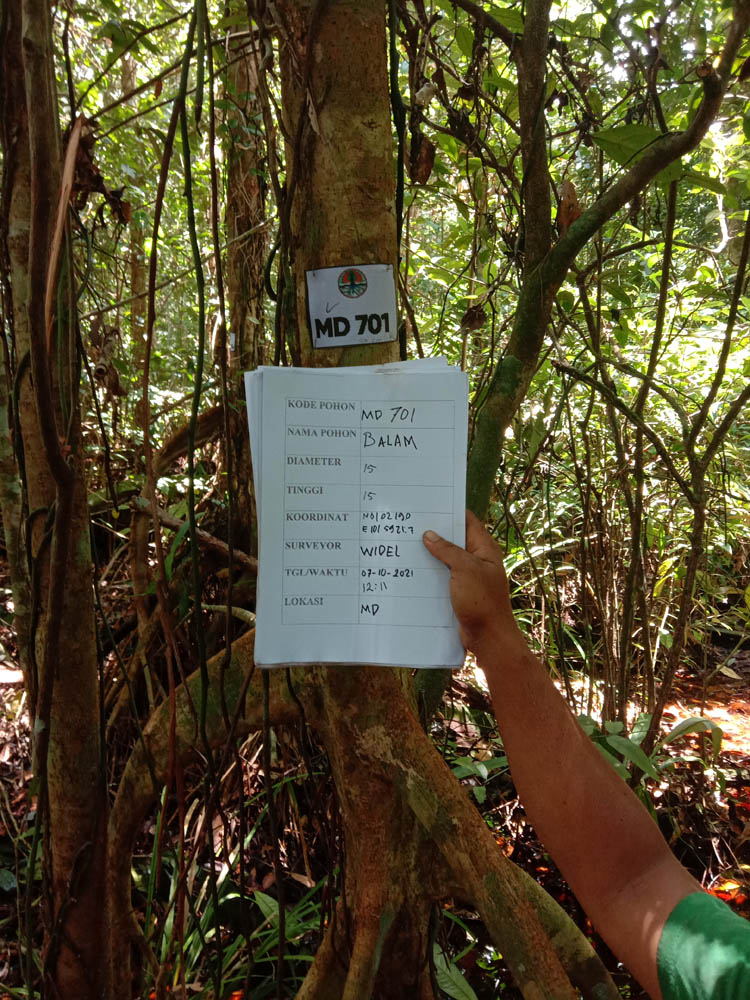 MD 701
KODE POHON MD 701
NAMA POHON BALAM
DIAMETER 15
TINGGI 15
KOORDINAT N01 02190
E101 5921.7
SURVEYOR WIDEL
TGL/WAKTU 07-10-2021
12:11
LOKASI MD